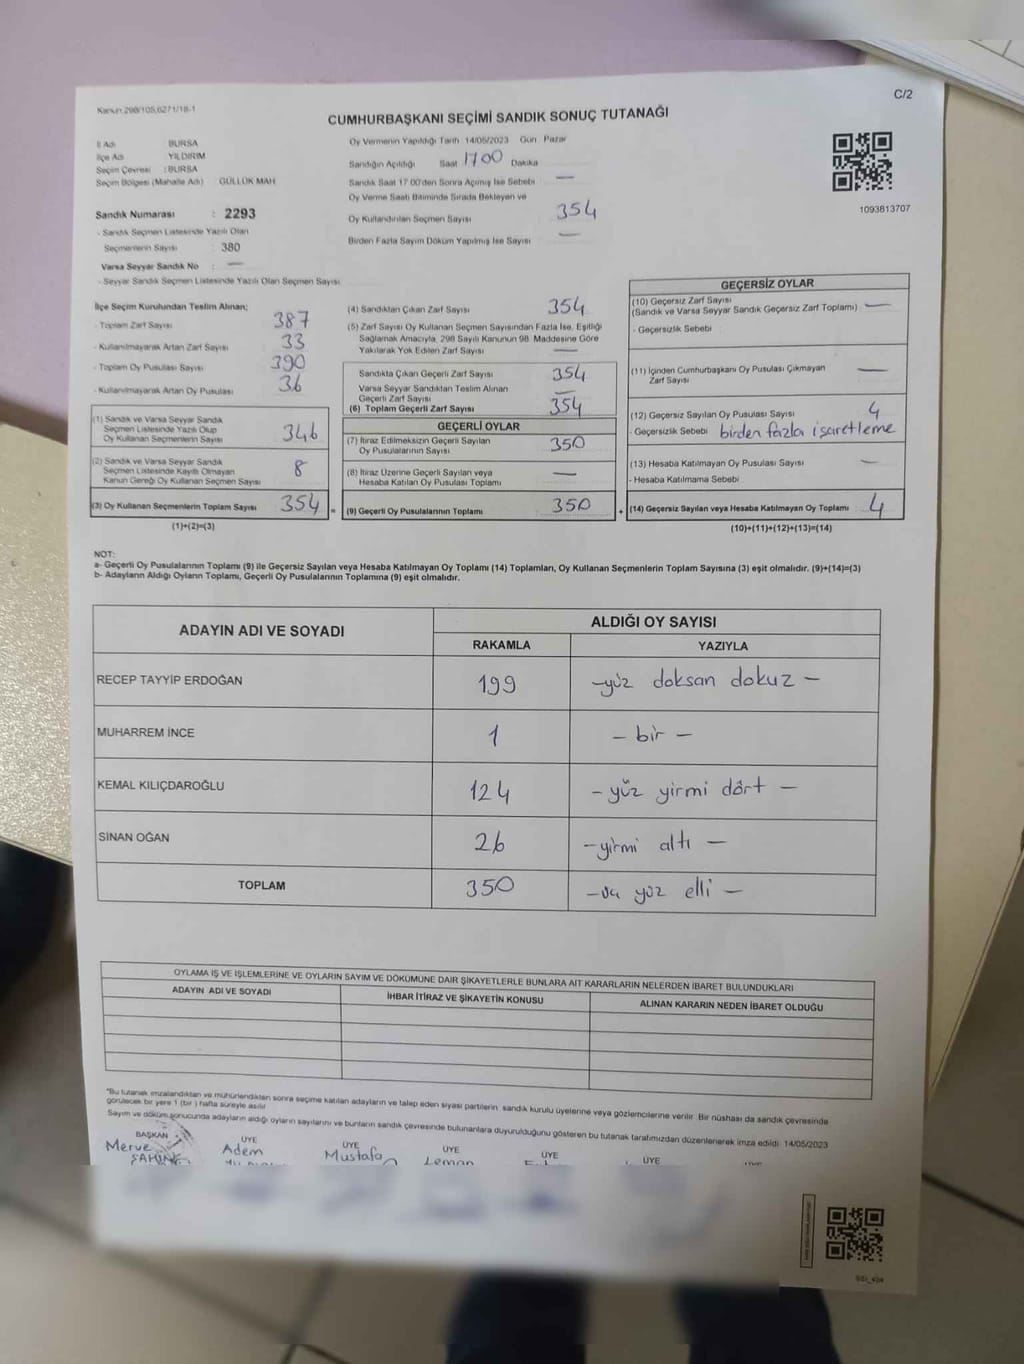 Kanun 298/105,6271/18-1
C/2
CUMHURBAŞKANI SEÇİMİ SANDIK SONUÇ TUTANAĞI
İl Adı BURSA
İlçe Adı YILDIRIM
Seçim Çevresi : BURSA
Seçim Bölgesi (Mahalle Adı) GÜLLÜK MAH
Sandık Numarası : 2293
- Sandık Seçmen Listesinde Yazılı Olan
Seçmenlerin Sayısı : 380
Varsa Seyyar Sandık No : —
- Seyyar Sandık Seçmen Listesinde Yazılı Olan Seçmen Sayısı
Oy Vermenin Yapıldığı Tarih 14/05/2023 Gün Pazar
Sandığın Açıldığı Saat 1700 Dakika
Sandık Saat 17.00'den Sonra Açılmış İse Sebebi —
Oy Verme Saati Bitiminde Sırada Bekleyen ve
Oy Kullandırılan Seçmen Sayısı 354
Birden Fazla Sayım Döküm Yapılmış İse Sayısı —
1093813707
İlçe Seçim Kurulundan Teslim Alınan;
- Toplam Zarf Sayısı 387
- Kullanılmayarak Artan Zarf Sayısı 33
- Toplam Oy Pusulası Sayısı 390
- Kullanılmayarak Artan Oy Pusulası 36
(1) Sandık ve Varsa Seyyar Sandık
Seçmen Listesinde Yazılı Olup
Oy Kullanan Seçmenlerin Sayısı 346
(2) Sandık ve Varsa Seyyar Sandık
Seçmen Listesinde Kayıtlı Olmayan
Kanun Gereği Oy Kullanan Seçmen Sayısı 8
(3) Oy Kullanan Seçmenlerin Toplam Sayısı 354 =
(1)+(2)=(3)
(4) Sandıktan Çıkan Zarf Sayısı 354
(5) Zarf Sayısı Oy Kullanan Seçmen Sayısından Fazla İse, Eşitliği
Sağlamak Amacıyla, 298 Sayılı Kanunun 98. Maddesine Göre
Yakılarak Yok Edilen Zarf Sayısı —
Sandıkta Çıkan Geçerli Zarf Sayısı 354
Varsa Seyyar Sandıktan Teslim Alınan
Geçerli Zarf Sayısı —
(6) Toplam Geçerli Zarf Sayısı 354
GEÇERLİ OYLAR
(7) İtiraz Edilmeksizin Geçerli Sayılan
Oy Pusulalarının Sayısı 350
(8) İtiraz Üzerine Geçerli Sayılan veya
Hesaba Katılan Oy Pusulası Toplamı —
(9) Geçerli Oy Pusulalarının Toplamı 350 +
GEÇERSİZ OYLAR
(10) Geçersiz Zarf Sayısı
(Sandık ve Varsa Seyyar Sandık Geçersiz Zarf Toplamı) —
- Geçersizlik Sebebi
(11) İçinden Cumhurbaşkanı Oy Pusulası Çıkmayan
Zarf Sayısı —
(12) Geçersiz Sayılan Oy Pusulası Sayısı 4
- Geçersizlik Sebebi birden fazla işaretleme
(13) Hesaba Katılmayan Oy Pusulası Sayısı —
- Hesaba Katılmama Sebebi
(14) Geçersiz Sayılan veya Hesaba Katılmayan Oy Toplamı 4
(10)+(11)+(12)+(13)=(14)
NOT:
a- Geçerli Oy Pusulalarının Toplamı (9) ile Geçersiz Sayılan veya Hesaba Katılmayan Oy Toplamı (14) Toplamları, Oy Kullanan Seçmenlerin Toplam Sayısına (3) eşit olmalıdır. (9)+(14)=(3)
b- Adayların Aldığı Oyların Toplamı, Geçerli Oy Pusulalarının Toplamına (9) eşit olmalıdır.
ADAYIN ADI VE SOYADI
ALDIĞI OY SAYISI
RAKAMLA YAZIYLA
RECEP TAYYİP ERDOĞAN 199 -yüz doksan dokuz -
MUHARREM İNCE 1 - bir -
KEMAL KILIÇDAROĞLU 124 - yüz yirmi dört -
SİNAN OĞAN 26 -yirmi altı -
TOPLAM 350 yüz elli -
OYLAMA İŞ VE İŞLEMLERİNE VE OYLARIN SAYIM VE DÖKÜMÜNE DAİR ŞİKAYETLERLE BUNLARA AİT KARARLARIN NELERDEN İBARET BULUNDUKLARI
ADAYIN ADI VE SOYADI İHBAR İTİRAZ VE ŞİKAYETİN KONUSU ALINAN KARARIN NEDEN İBARET OLDUĞU
*Bu tutanak imzalandıktan ve mühürlendikten sonra seçime katılan adayların ve talep eden siyasi partilerin sandık kurulu üyelerine veya gözlemcilerine verilir. Bir nüshası da sandık çevresinde
görülecek bir yere 1 (bir) hafta süreyle asılır.
Sayım ve döküm sonucunda adayların aldığı oyların sayılarını ve bunların sandık çevresinde bulunanlara duyurulduğunu gösteren bu tutanak tarafımızdan düzenlenerek imza edildi. 14/05/2023
BAŞKAN ÜYE ÜYE ÜYE ÜYE ÜYE
Merve Adem Mustafa Leman
ŞAHİN